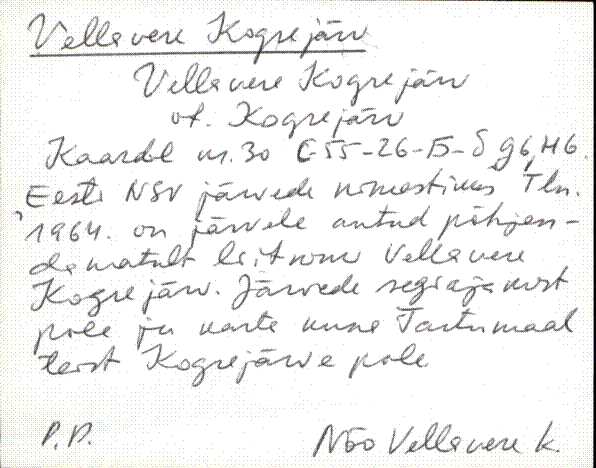 Vellavere Kogrejärv
Vellavere Kogrejärv
ot. Kogrejärv
Kaardil nr. 30 C-55-26-Б-δ g6, H6.
"Eesti NSV järvede nimestikus" Tln.
1964. on järvele antud põhjen-
damatult liitnimi Vellavere
Kogrejärv. Järvede segiajamist
pole ju karta kuna Tartumaal
teist Kogrejärve pole.
P. P.
Nõo Vellavere k.